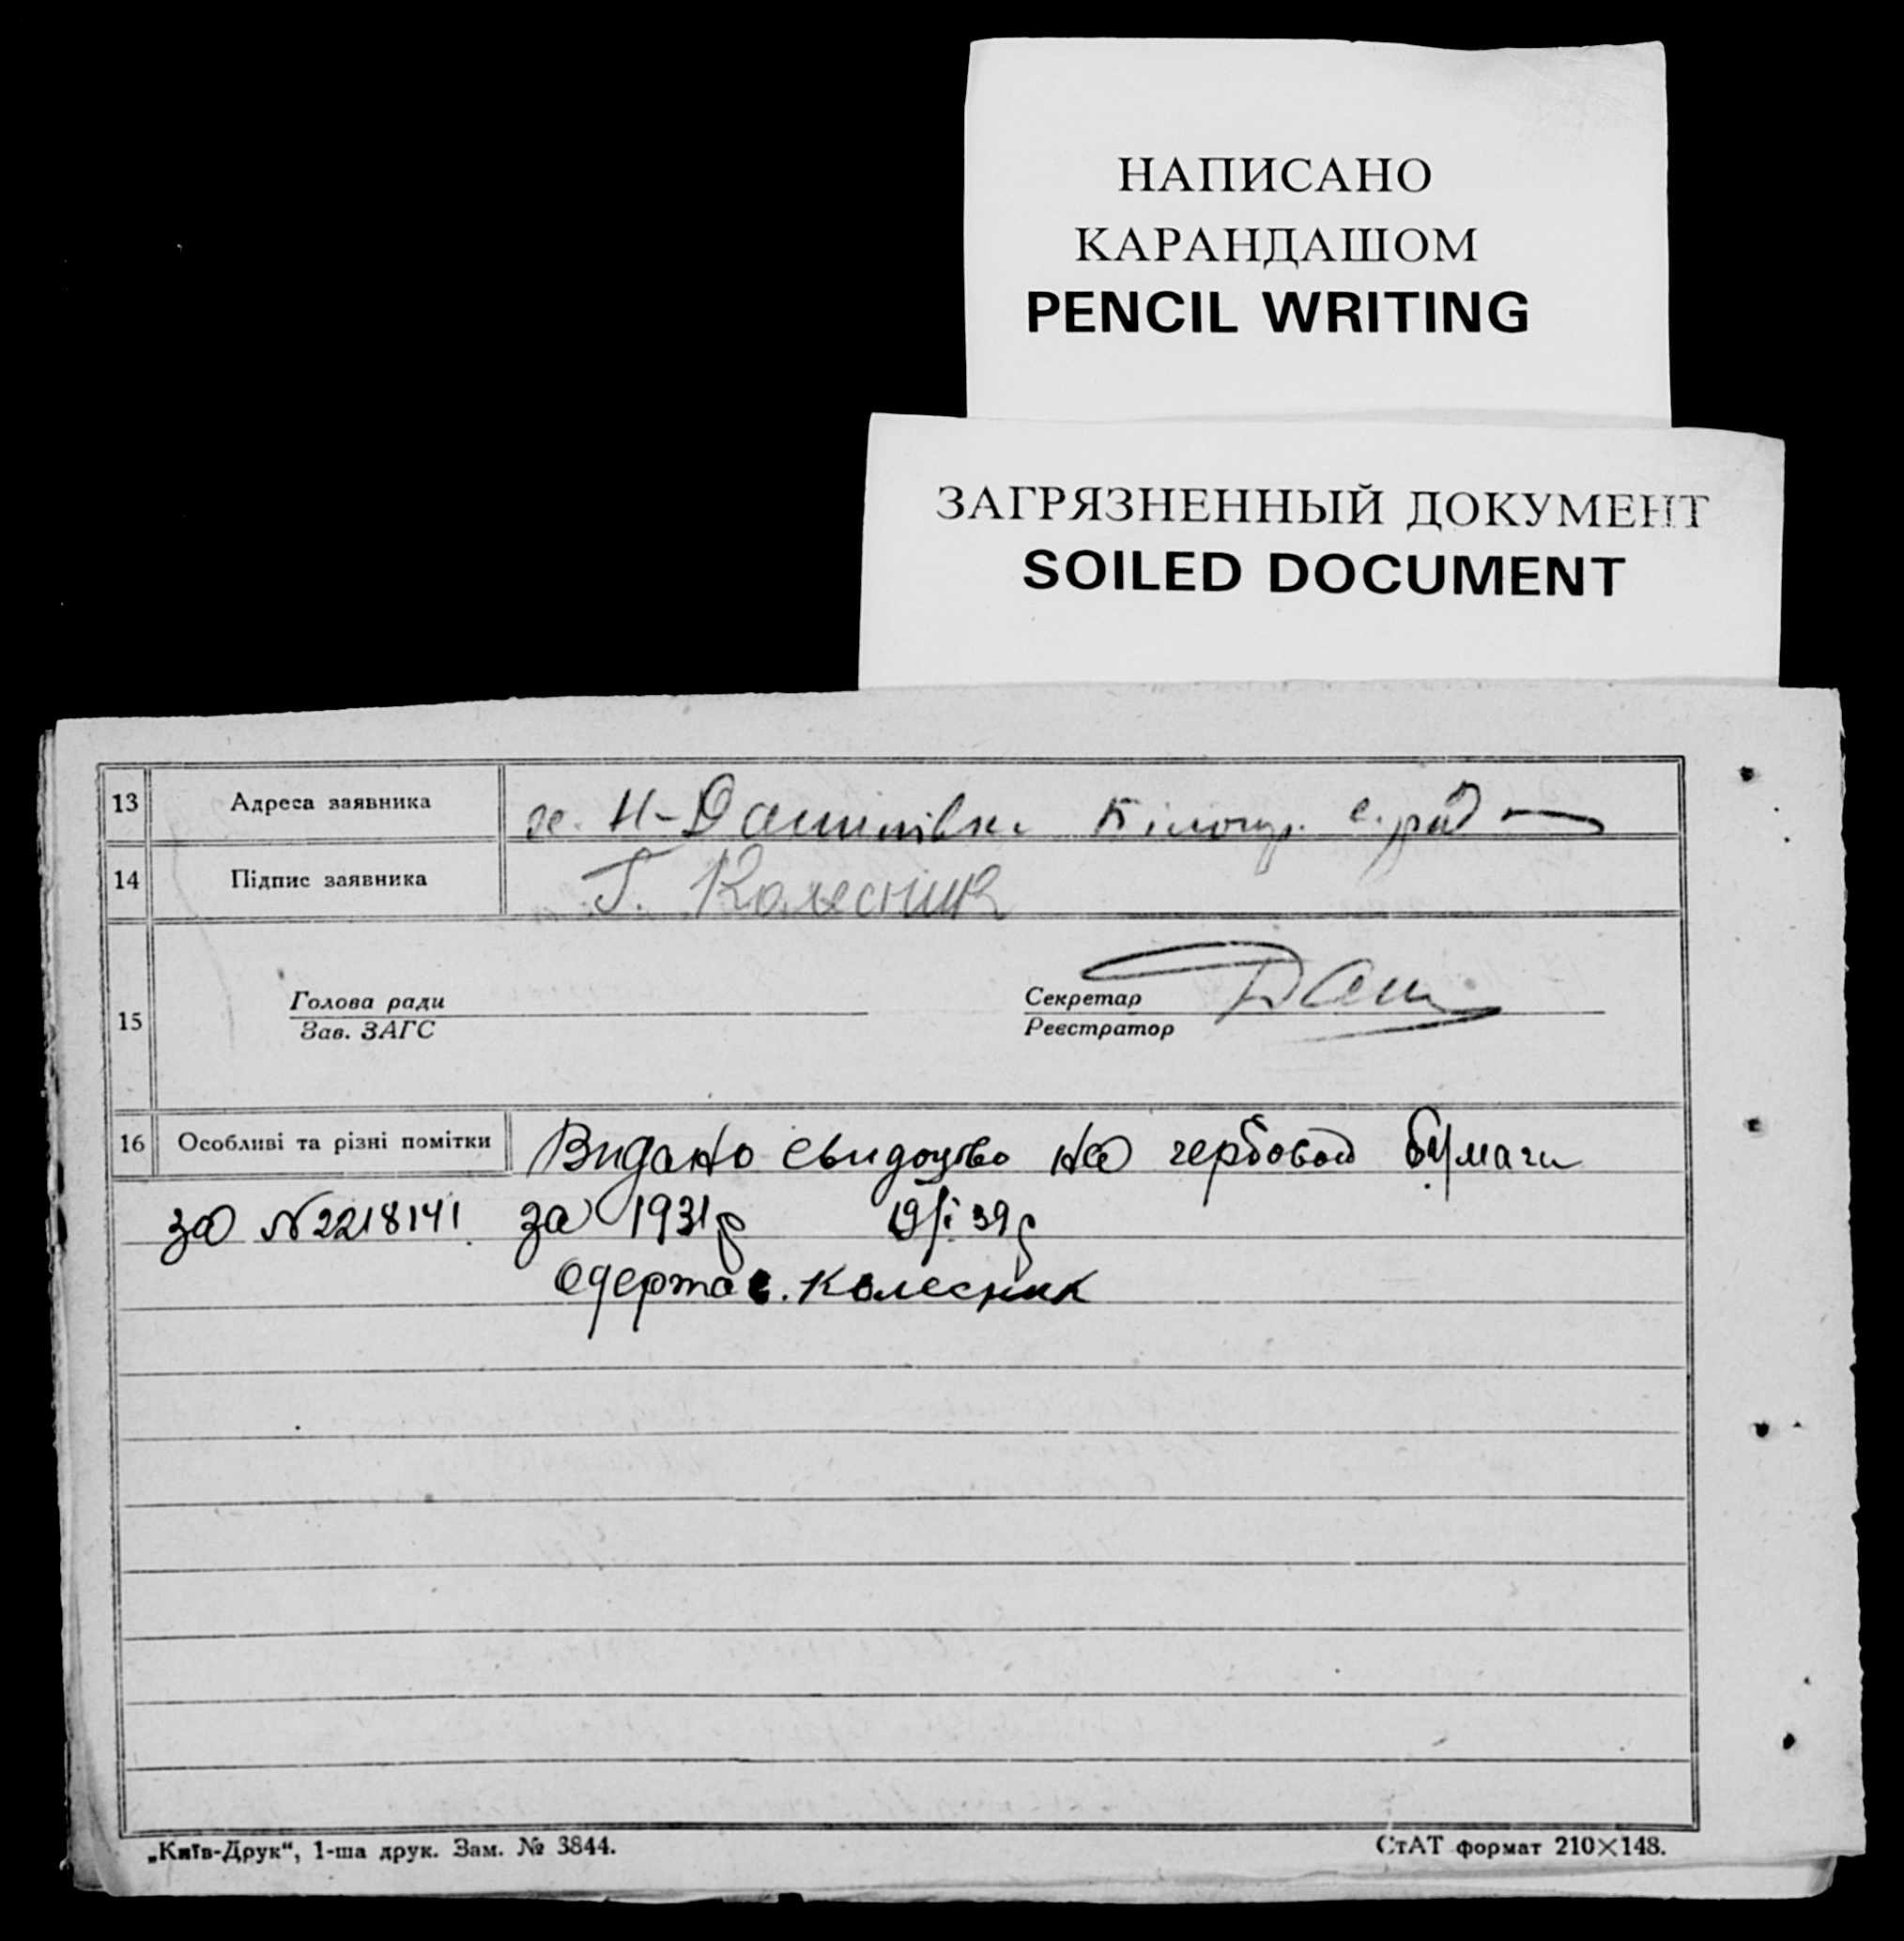 НАПИСАНО
КАРАНДАШОМ
PENCIL WRITING
ЗАГРЯЗНЕННЫЙ ДОКУМЕНТ
SOILED DOCUMENT
13 Адреса заявника х. Н-Данилівка с. рад
14 Підпис заявника Г. Колесник
Голова ради Секретар
15
Зав. ЗАГС Реєстратор
16 Особливі та різні помітки Видано свидоцтво на гербовой бумаги
за №2218141 за 1931р 19/і 39р
Одержав. Колесник
„Київ-Друк“, 1-ша друк. Зам. № 3844. СтАТ формат 210×148.